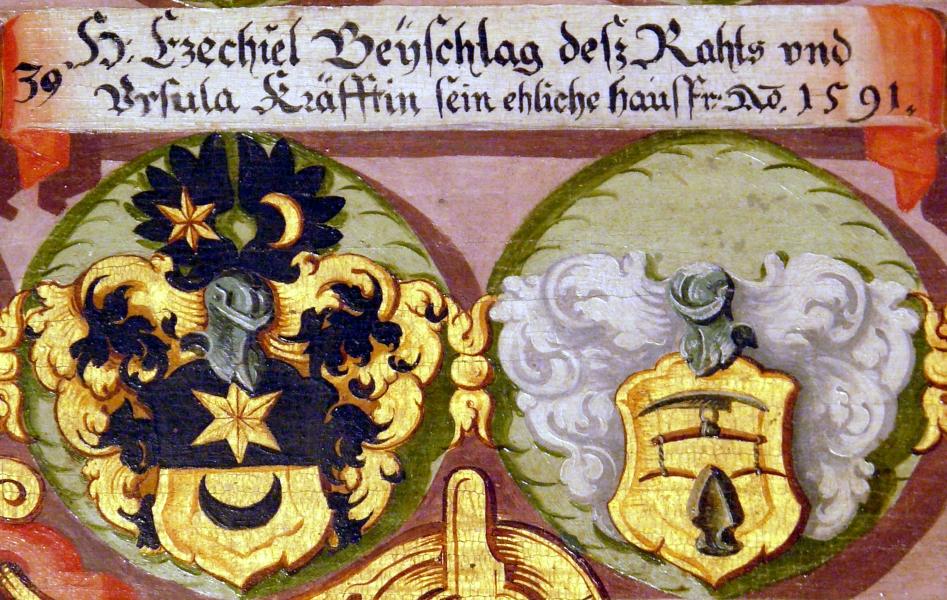 H: Ezechiel Beÿschlag desz Rahts vnd
39 Vrsula Kräfftin sein ehliche hausfr. Aō. 1591.